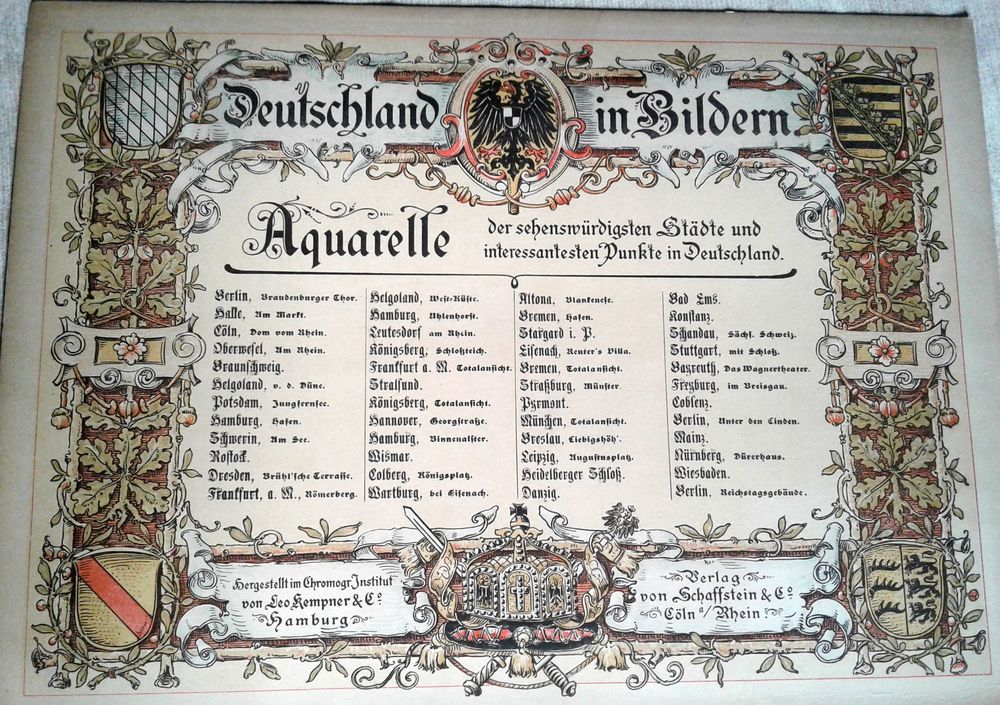 Deutschland in Bildern.
Aquarelle
der sehenswürdigsten Städte und
interessantesten Punkte in Deutschland.
Berlin, Brandenburger Thor.
Halle, Am Markt.
Cöln, Dom vom Rhein.
Oberwesel, Am Rhein.
Braunschweig.
Helgoland, v. d. Düne.
Potsdam, Jungfernsee.
Hamburg, Hafen.
Schwerin, Am See.
Rostock.
Dresden, Brühl'sche Terrasse.
Frankfurt, a. M., Römerberg.
Helgoland, West-Küste.
Hamburg, Uhlenhorst.
Leutesdorf am Rhein.
Königsberg, Schloßteich.
Frankfurt a. M. Totalansicht.
Stralsund.
Königsberg, Totalansicht.
Hannover, Georgstraße.
Hamburg, Binnenalster.
Wismar.
Colberg, Königsplatz.
Wartburg, bei Eisenach.
Altona, Blankenese.
Bremen, Hafen.
Stargard i. P.
Eisenach, Reuter's Villa.
Bremen, Totalansicht.
Straßburg, Münster.
Pyrmont.
München, Totalansicht.
Breslau, Liebigshöh'.
Leipzig, Augustusplatz.
Heidelberger Schloß.
Danzig.
Bad Ems.
Konstanz.
Schandau, Sächs. Schweiz.
Stuttgart, mit Schloß.
Bayreuth, Das Wagnertheater.
Freyburg, im Breisgau.
Coblenz.
Berlin, Unter den Linden.
Mainz.
Nürnberg, Dürerhaus.
Wiesbaden.
Berlin, Reichstagsgebände.
Hergestellt im Chromogr. Institut
von Leo Kempner & Co
Hamburg
Verlag
von Schaffstein & Co
Cöln a/Rhein